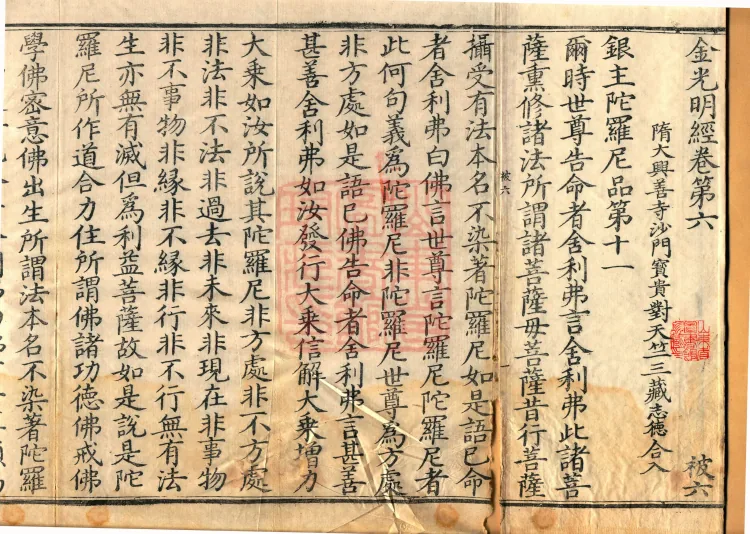 金光明經卷第六 被六
隋大興善寺沙門寶貴對天竺三藏志德合入
銀主陀羅尼品第十一
爾時世尊告命者舍利弗言舍利弗此諸菩
薩熏修諸法所謂諸菩薩母菩薩昔行菩薩
被六
攝受有法本名不染著陀羅尼如是語已命
者舍利弗白佛言世尊言陀羅尼陀羅尼者
此何句義為陀羅尼非陀羅尼世尊為方處
非方處如是語已佛告命者舍利弗言甚善
甚善舍利弗如汝發行大乘信解大乘增力
大乘如汝所說其陀羅尼非方處非不方處
非法非不法非過去非未來非現在非事物
非不事物非緣非不緣非行非不行無有法
生亦無有滅但為利益菩薩故如是說是陀
羅尼所作道合力住所謂佛諸功德佛戒佛
學佛密意佛出生所謂法本名不染著陀羅